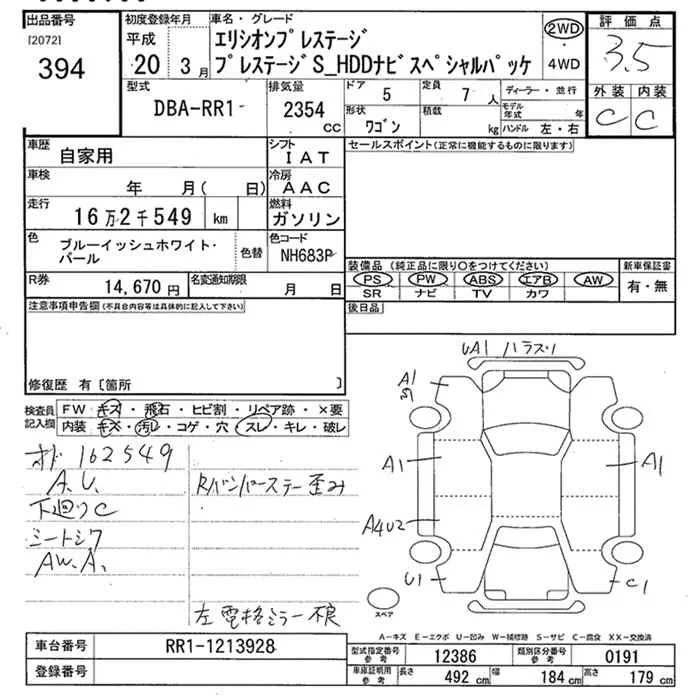 出品番号
[2072]
394
初度登録年月
平成
20 3月
車名・グレード
エリシオンプレステージ
プレステージS_HDDナビスペシャルパッケ
2WD
・
4WD
評価点
3.5
外装 内装
C C
型式
DBA-RR1
排気量
2354
CC
ドア 5
定員 7人
ディーラー・並行
形状 ワゴン
積載 kg
モデル年式 年
ハンドル 左・右
車歴 自家用
シフト IAT
車検 年 月( 日)
冷房 AAC
走行 16万2千549 km
燃料 ガソリン
色 ブルーイッシュホワイト・パール
色替
色コード NH683P
R券 14,670円
名変通知期限 月 日
セールスポイント(正常に機能するものに限ります)
装備品 (純正品に限り○をつけてください)
PS PW ABS エアB AW
SR ナビ TV カワ
新車保証書
有・無
後日品
注意事項申告欄(不具合内容等は具体的に記入して下さい)
修復歴 有〔箇所 〕
検査員記入欄
FW キズ・飛石・ヒビ割・リペア跡・×要
内装 キズ・汚レ・コゲ・穴・スレ・キレ・破レ
オド 162549
A.U.
下廻りC
シートシワ
AW.A.
Rバンパーステー歪み
左電格ミラー不良
UA1 ハラスリ
A1
A1
A1
A4U2
U1
C1
スペア
A－キズ E－エクボ U－凹み W－補修跡 S－サビ C－腐食 XX－交換済
車台番号 RR1-1213928
登録番号
型式指定番号 参考 12386
類別区分番号 参考 0191
車庫証明用 参考 長さ 492 cm 幅 184 cm 高さ 179 cm